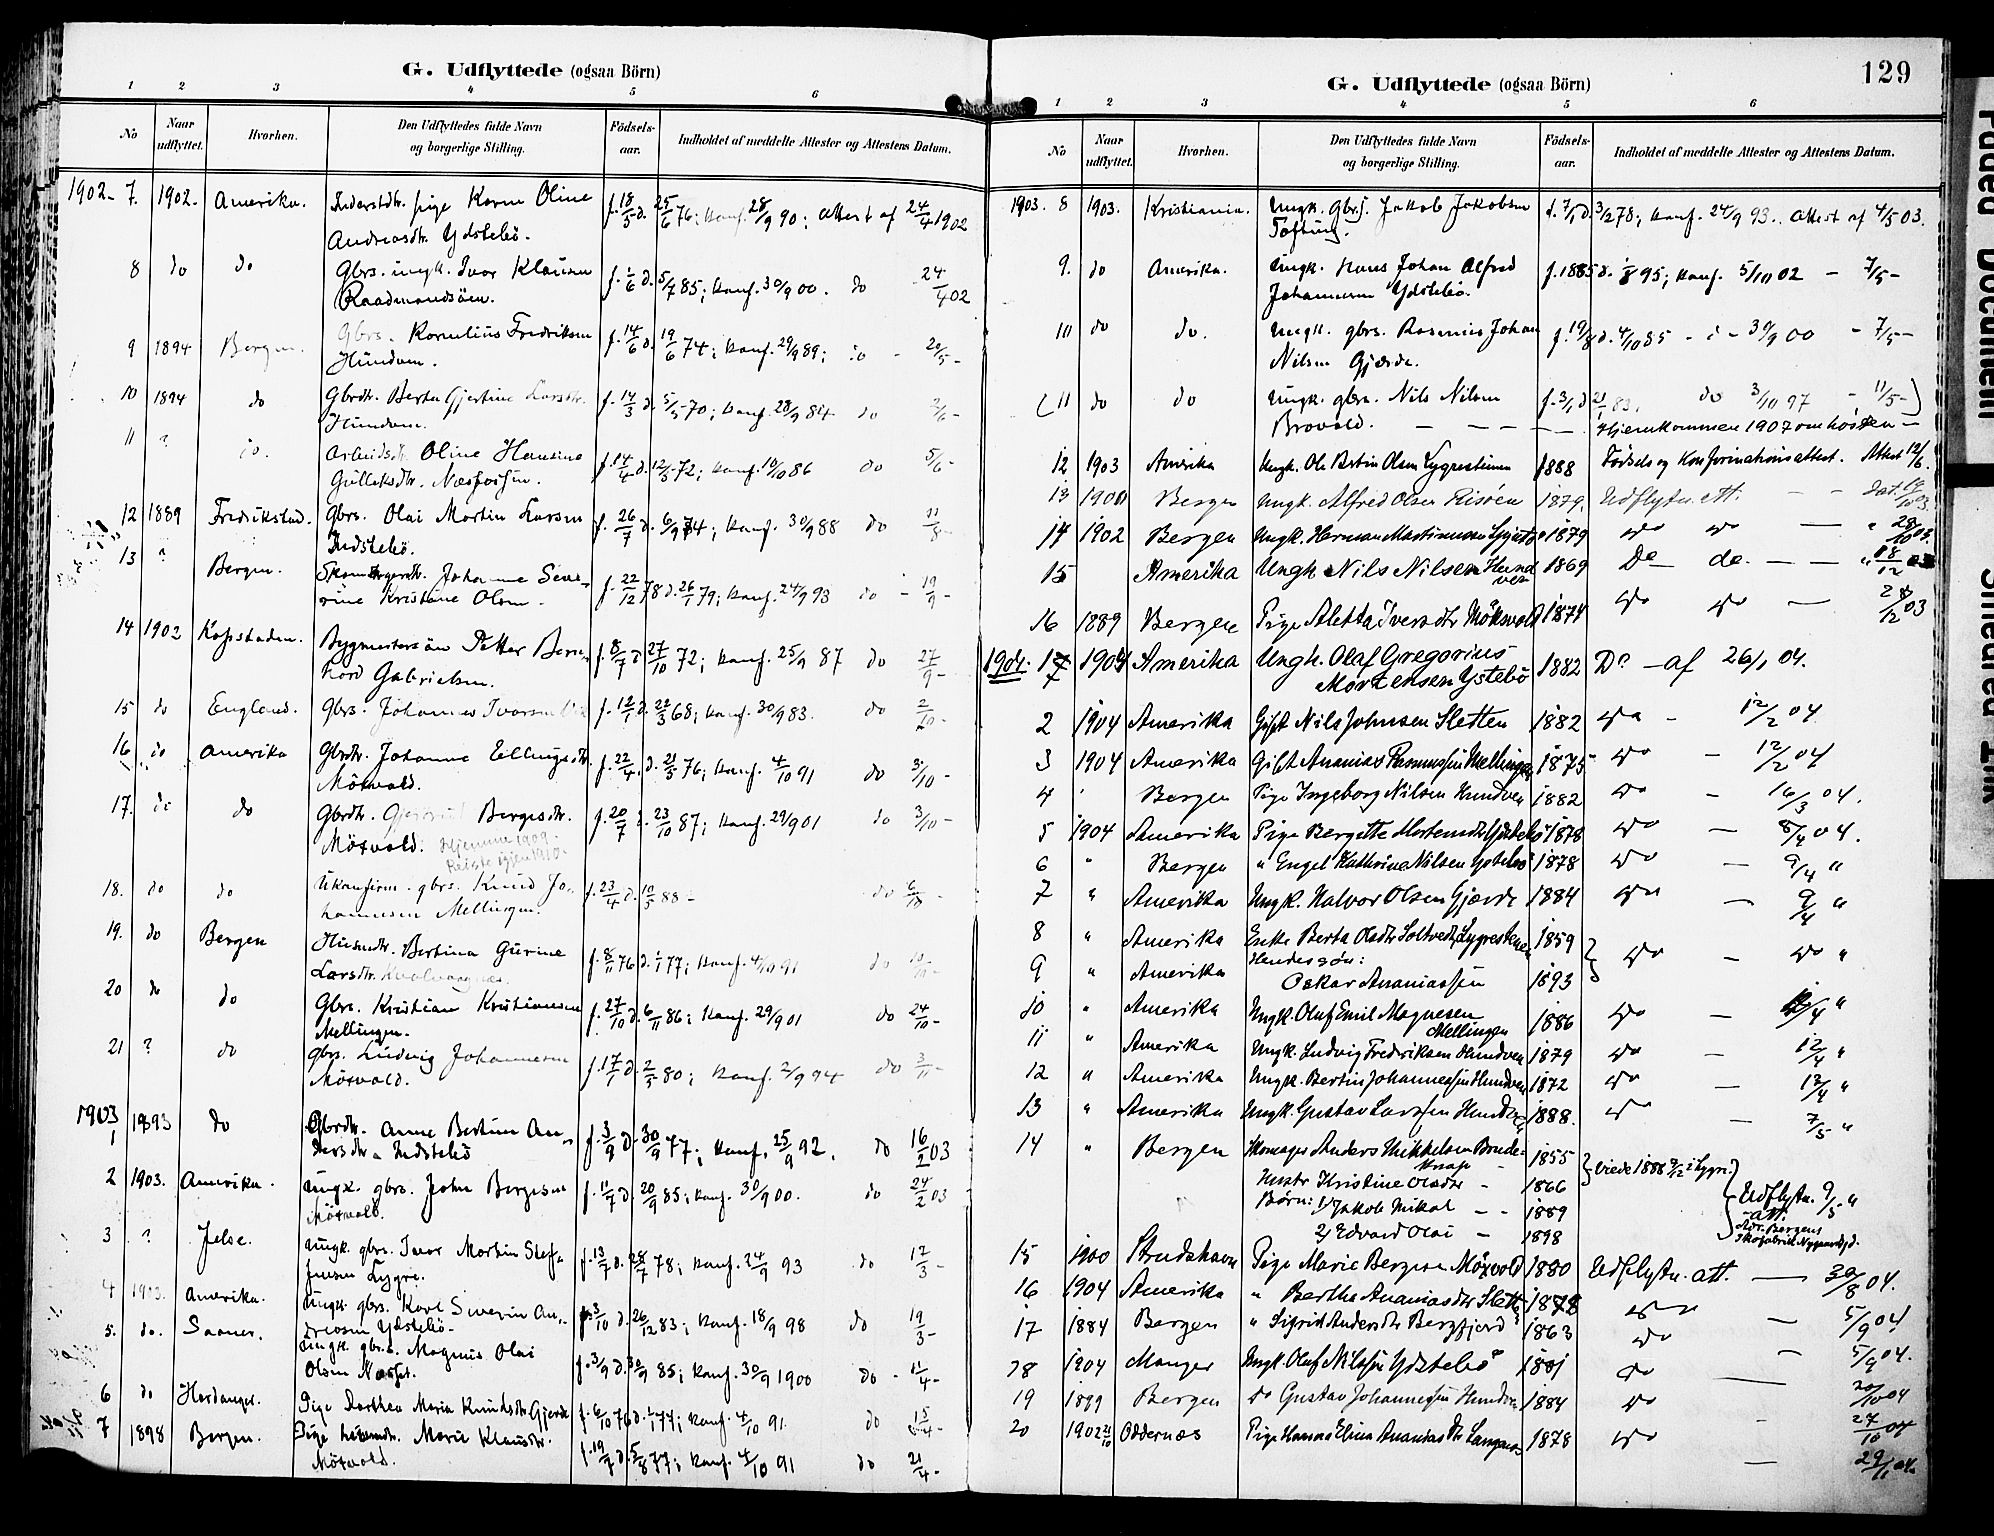 G. Udflyttede (ogsaa Börn)
1 2 3 4 5 6
No Naar udflyttet. Hvorhen. Den Udflyttedes fulde Navn og borgerlige Stilling. Födsels-aar. Indholdet af meddelte Attester og Attestens Datum.
1902- 7. 1902. Amerika. pige Karen Oline f. 18/5 d. 25/6 76; Konf. 28/9 90; Attest af 24/4 1902
Andreasdtr. Ydstebö.
8 do do Gbrs. ungk. Ivar Klausen f. 1/6 d. 5/7 85; Konf. 30/9 00. do 24/4 02
9 1894 Bergen. Gbrs. Kornelius Fredriksen f. 14/6 d. 19/6 74; Konf. 29/9 89; do - 20/5 -
Hundven.
10 1894 do Gbrdtr. Berta Gjertine Larsdtr. f. 14/3 d. 5/5 70; Konf. 28/9 84 do 2/6 -
Hundven.
11 ? do. Arbeidsdtr. Oline Hansine f. 14/4 d. 12/5 72; Konf. 10/10 86 do 5/6 -
12 1889 Fredrikstad. Gbrs. Olai Martin Larsen f. 26/7 d. 6/9 74; Konf. 30/9 88 do 11/8 -
Indstebö.
13 ? Bergen. Johanne Seve- f. 22/12 78 d. 26/1 79; Konf. 24/9 93 do - 19/9 -
rine Kristine Olsen.
14 1902 Kapstaden. Bygmestersön Petter Bern- f. 8/7 d. 27/10 72; Konf. 25/9 87 do 27/9 -
hard Gabrielsen.
15 do England. Gbrs. Johannes Ivarsen f. 12/1 d. 22/3 68; Konf. 30/9 83. do 2/10 -
16 do Amerika Gbrdtr. Johanne Ellingsdtr. f. 22/4 d. 21/5 76; Konf. 4/10 91 do 3/10 -
Möxvold.
17. do do Gbrdtr. Bergesdtr. f. 20/7 d. 23/10 87; Konf. 29/9 01 do 3/10 -
Möxvold. Hjemme 1909.
Reiste igjen 1910.
18. do do Ukonfirm. gbrs. Knud Jo- f. 23/4 d. 10/5 88 - do 6/10 -
hannesen Mellingen.
19. do Bergen Husmdtr. Bertina Gurine f. 8/11 76 d. 1/1 77; Konf. 4/10 91 do 10/11 -
Larsdtr.
20 do do Gbrs. Kristian Kristiansen f. 27/10 d. 6/11 86; Konf. 29/9 01 do 24/10 -
Mellingen.
21 ? do gbrs. Ludvig Johannesen f. 17/1 d. 2/5 80; Konf. 2/9 94 do 3/11 -
Möxvold.
1903
1 1893 do Gbrdtr. Anne Bertine An- f. 3/9 d. 30/9 77; Konf. 25/9 92. do 16/2 03
dersdtr. Indstebö
2 1903. Amerika. ungk. gbrs. John Bergesen f. 11/7 d. 20/9 85; Konf. 30/9 00. do 24/2 03
Möxvold.
3 ? Jelse. Ungk. gbrs. Ivar Martin Stef- f. 13/7 d. 28/7 78; Konf. 24/9 93 do 17/3 -
fensen Lygre.
4 1903. Amerika. Ungk. gbrs. Karl Severin An- f. 3/10 d. 26/12 83; Konf. 18/9 98 do 19/3 -
dreasen Ydstebö.
5. do. ungk. gbrs. Magnus Olai f. 3/9 d. 30/9 85; Konf. 30/9 1900 do - 11/4 -
6 do Hardanger. Pige Dorthea Maria Knudsdtr. Gjerde f. 6/10 76 d. 1/1 77; Konf. 4/10 91 do 15/4 -
7 1898 Bergen. Pige Marie Klausdtr. f. 19/7 d. 5/8 77; Konf. 4/10 91 do 21/4 -
Möxvold.
G. Udflyttede (ogsaa Börn) 129
1 2 3 4 5 6
No Naar udflyttet. Hvorhen. Den Udflyttedes fulde Navn og borgerlige Stilling. Födsels-aar. Indholdet af meddelte Attester og Attestens Datum.
1903. 8 1903. Kristiania. Ungk. Gbrs. Jakob Jakobsen f. 7/1 d. 3/2 78; Konf. 24/9 93. Attest af 4/5 03.
9. do Amerika. Ungk. Hans Johan Alfred f. 1885 Konf. 5/10 02 - 7/5 -
Johannesen Ydstebö.
10 do do. Ungk. gbrs. Rasmus Johan f. 19/8 d. 4/10 85 - - 30/9 00 - 7/5 -
Nilsen Gjerde.
(11 do do Ungk. gbrs. Nils Nilsen f. 3/1 d. 21/1 83. do 3/10 97 - 11/5 -)
Brovold. Hjemkommen 1907 om hösten -
12 1903 Amerika Ungk. Ole Bertin Olsen Lygrestenen 1888 Födsels og Konfirmationsattest. Attest 12/6.
13 1900 Bergen Ungk. Alfred Olsen 1879. Udflytn. att. - - dat.
14 1902 Bergen Ungk. Herman Martinusen 1879 do do - " 28/10 03.
15 Amerika Ungk. Nils Nilsen Hundven 1869 Do do. - - " 18/12 03
16 1889 Bergen Pige Aletta Iversdtr Möksvold 1874 do do - 28/12 03
1904. 1 1904 Amerika Ungk. Olaf Gregorius 1882 Do - af 26/1 04.
Mortensen Ystebö
2 1904 Amerika Gift Nils Johnsen Sletten 1882 do - 12/2 04.
3 1904 Amerika Gift Ananias Rasmussen Mellingen 1875 do - 12/2 04
4 ' Bergen Pige Ingeborg Nilsen Hundven 1882 do - 16/3 04.
5 1904 Amerika Pige Bergitte Mortensdtr Ydstebö 1878 do - 8/4 04.
6 " Bergen " Engel Kathrine Nilsen Ystebö 1878 do - 9/4 "
7 " Amerika Ungk. Halvor Olsen Gjerde 1884 do - 9/4 "
8 " Amerika Enke Berta Olsdtr Soltvedt, Lygrestenen 1859 } do - do "
Hendes sön:
9 " Amerika Oskar Ananiassen 1893
10 " Amerika Ungk. Oluf Emil Magnesen 1886 do - 12/4 "
Mellingen
11 " Amerika Ungk. Ludvig Fredriksen Hundven 1879 do - 12/4 "
12 " Amerika Ungk. Bertin Johannessen Hundven 1872 do - 12/4 "
13 " Amerika Ungk. Gustav Larssen Hundven 1888. do - 7/5 "
14 " Bergen Skomager Anders Mikkelsen Brude- 1855 } viede 1888 2/12 i Lygre.
knap
Hustr. Kristine Olsdtr - 1866 Udflytn. 9/5 "
Börn: 1/ Jakob Mikal - - 1889 - att.
2/ Edvard Olai - 1898 Adr. Bergens Skofabrik Nygaard
15 1900 Strudshavn Pige Marie Bergesen Möxvold 1880 Udflytn. att. - 30/8 04.
16 1904 Amerika " Bertha Ananiasdtr Sletten 1878 do 5/9 04
17 1884 Bergen " Sigrid Andersdtr Bergfjord 1863 do - 5/9 04.
18 1904 Manger Ungk. Oluf Nilssen Ydstebö 1881 do - 20/10 04
19 1899 Bergen do Gustav Johannessen Hundven 1884 do - 27/10 04
20 1902 21/10 Oddernes Pige Hanna Elina Ananiasdtr 1878 do - 29/11 04.